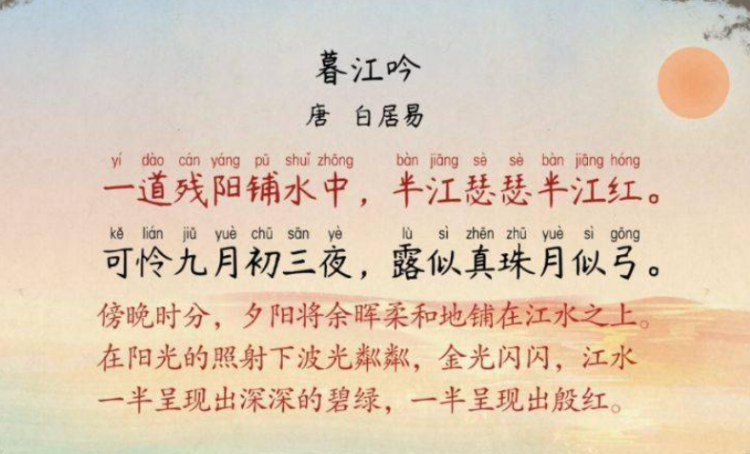 暮江吟
唐 白居易
yí dào cán yáng pū shuǐ zhōng bàn jiāng sè sè bàn jiāng hóng
一道残阳铺水中，半江瑟瑟半江红。
kě lián jiǔ yuè chū sān yè lù sì zhēn zhū yuè sì gōng
可怜九月初三夜，露似真珠月似弓。
傍晚时分，夕阳将余晖柔和地铺在江水之上。
在阳光的照射下波光粼粼，金光闪闪，江水
一半呈现出深深的碧绿，一半呈现出殷红。